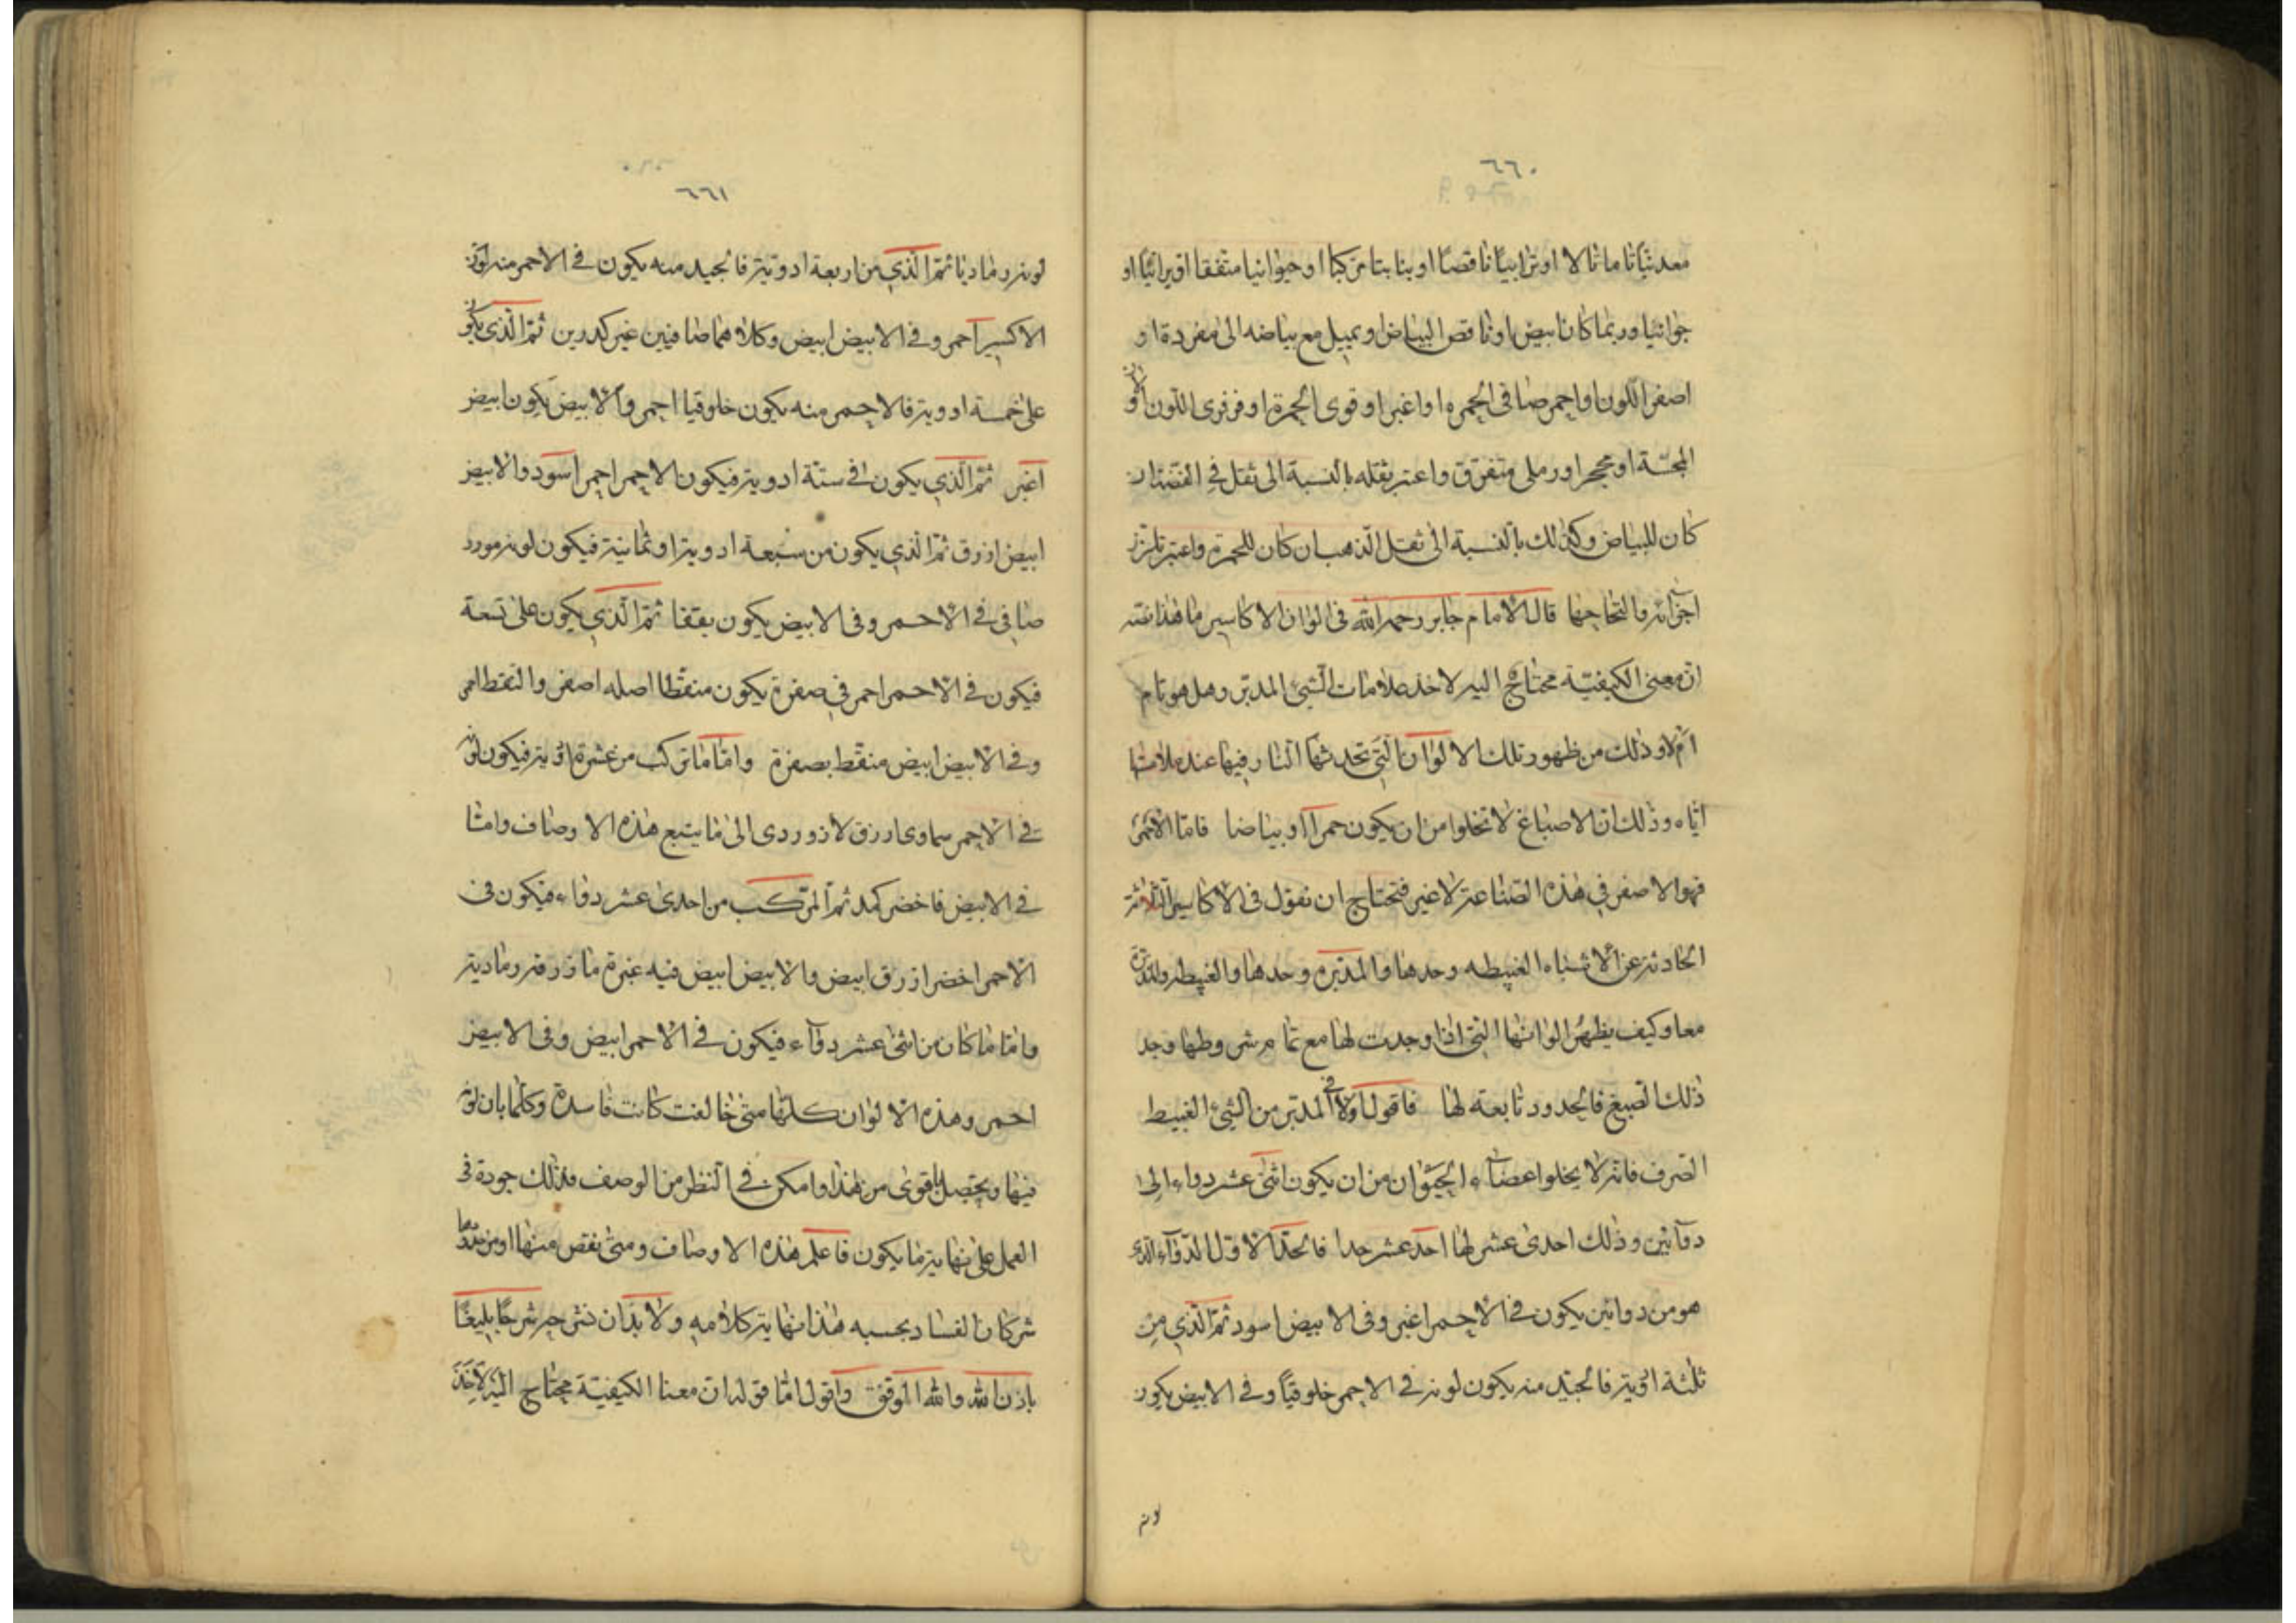 ٦٦٠
معدنيّا تاما ثالا او ترابيّا ناقصا او نباتا مركبا او حيوانيا متفقا او برانيّا او
جوانيا وربما كان ابيض او ناقص البياض او يميل مع بياضه الى مفردة او
اصفر اللون او احمر صافى الحمره او اغبر او قوى الحمرة او فرفرى اللون او
المجسّة او محجر او رملى متفرق واعتبر ثقله بالنسبة الى ثقل الفضة ان
كان للبياض وكذلك بالنسبة الى ثقل الذهب ان كان للحمرة واعتبر تلزز
اجزائه والتحاجها قال الامام جابر رحمه الله فى الوان الاكاسير ما هذا نصّه
ان معنى الكيفيّة محتاج اليه لاخذ علامات الشئ المدبّر وهل هو تام
ام لا وذلك من ظهور تلك الالوان التى تحدثها النار فيها عند ملامستها
ايّاه وذلك ان الاصباغ لا تخلوا من ان يكون حمرا او بياضا فاما الاحمر
فهو الاصفر فى هذه الصناعة لا غير فتحتاج ان نقول فى الاكاسير الثلاثة
الحادثة عن الاشياء الغبيطه وحدها والمدبّره وحدها والغبيطه والمدبّرة
معا وكيف يظهر الوانها التى اذا وجدت لها مع تمام شروطها وجد
ذلك الصبغ فالحدود تابعة لها فاقول اولا فى المدبّر من الشئ الغبيط
الصرف فانه لا يخلوا اعضاء الحيوان من ان يكون اثنى عشر دواء الى
دوائين وذلك احدى عشر لها احد عشر حدا فالحدّ الاول الدواء الذى
هو من دوائين يكون فى الاحمر اغبر وفى الابيض اسود ثمّ الذى من
ثلثة ادوية فالجيّد منه يكون لونه فى الاحمر خلوقيّا وفى الابيض يكون
لونه
٦٦١
لونه رماديا ثمّ الذى من اربعة ادوية فالجيد منه يكون فى الاحمر منه لون
الاكسير احمر وفى الابيض ابيض وكلاهما صافيين غير كدرين ثمّ الذى يكون
على خمسة ادوية فالاحمر منه يكون خلوقيا احمر والابيض يكون ابيض
اغبر ثمّ الذى يكون فى ستّة ادوية فيكون الاحمر احمر اسود والابيض
ابيض ازرق ثمّ الذى يكون من سبعة ادوية او ثمانية فيكون لونه مورد
صافى فى الاحمر وفى الابيض يكون يققا ثمّ الذى يكون على تسعة
فيكون فى الاحمر احمر فى صفرة يكون منقطا اصله اصفر والنقط احمر
وفى الابيض ابيض منقّط بصفرة واما ما تركب من عشرة ادوية فيكون لونه
فى الاحمر سماوى ازرق لازوردى الى ما يتبع هذه الاوصاف واما
فى الابيض فاخضر كمد ثمّ المركّب من احدى عشر دواء فيكون فى
الاحمر اخضر ازرق ابيض والابيض ابيض فيه غبرة ما زرقة رمادية
واما ما كان من اثنى عشر دواء فيكون فى الاحمر ابيض وفى الابيض
احمر وهذه الالوان كلّها متى خالفت كانت فاسدة وكلّما بان لونه
فيها ويحصل باقوى من هذا وامكن فى النظر من الوصف فذلك جودة فى
العمل على نهاية ما يكون فاعلم هذه الاوصاف ومتى نقص منها او من بعضها
شئ كان الفساد بحسبه هذا نهاية كلامه ولا بدّ ان نشرحه شرحا بليغا
باذن الله والله الموفق واقول اما قوله ان معنا الكيفيّة محتاج اليه لاخذ